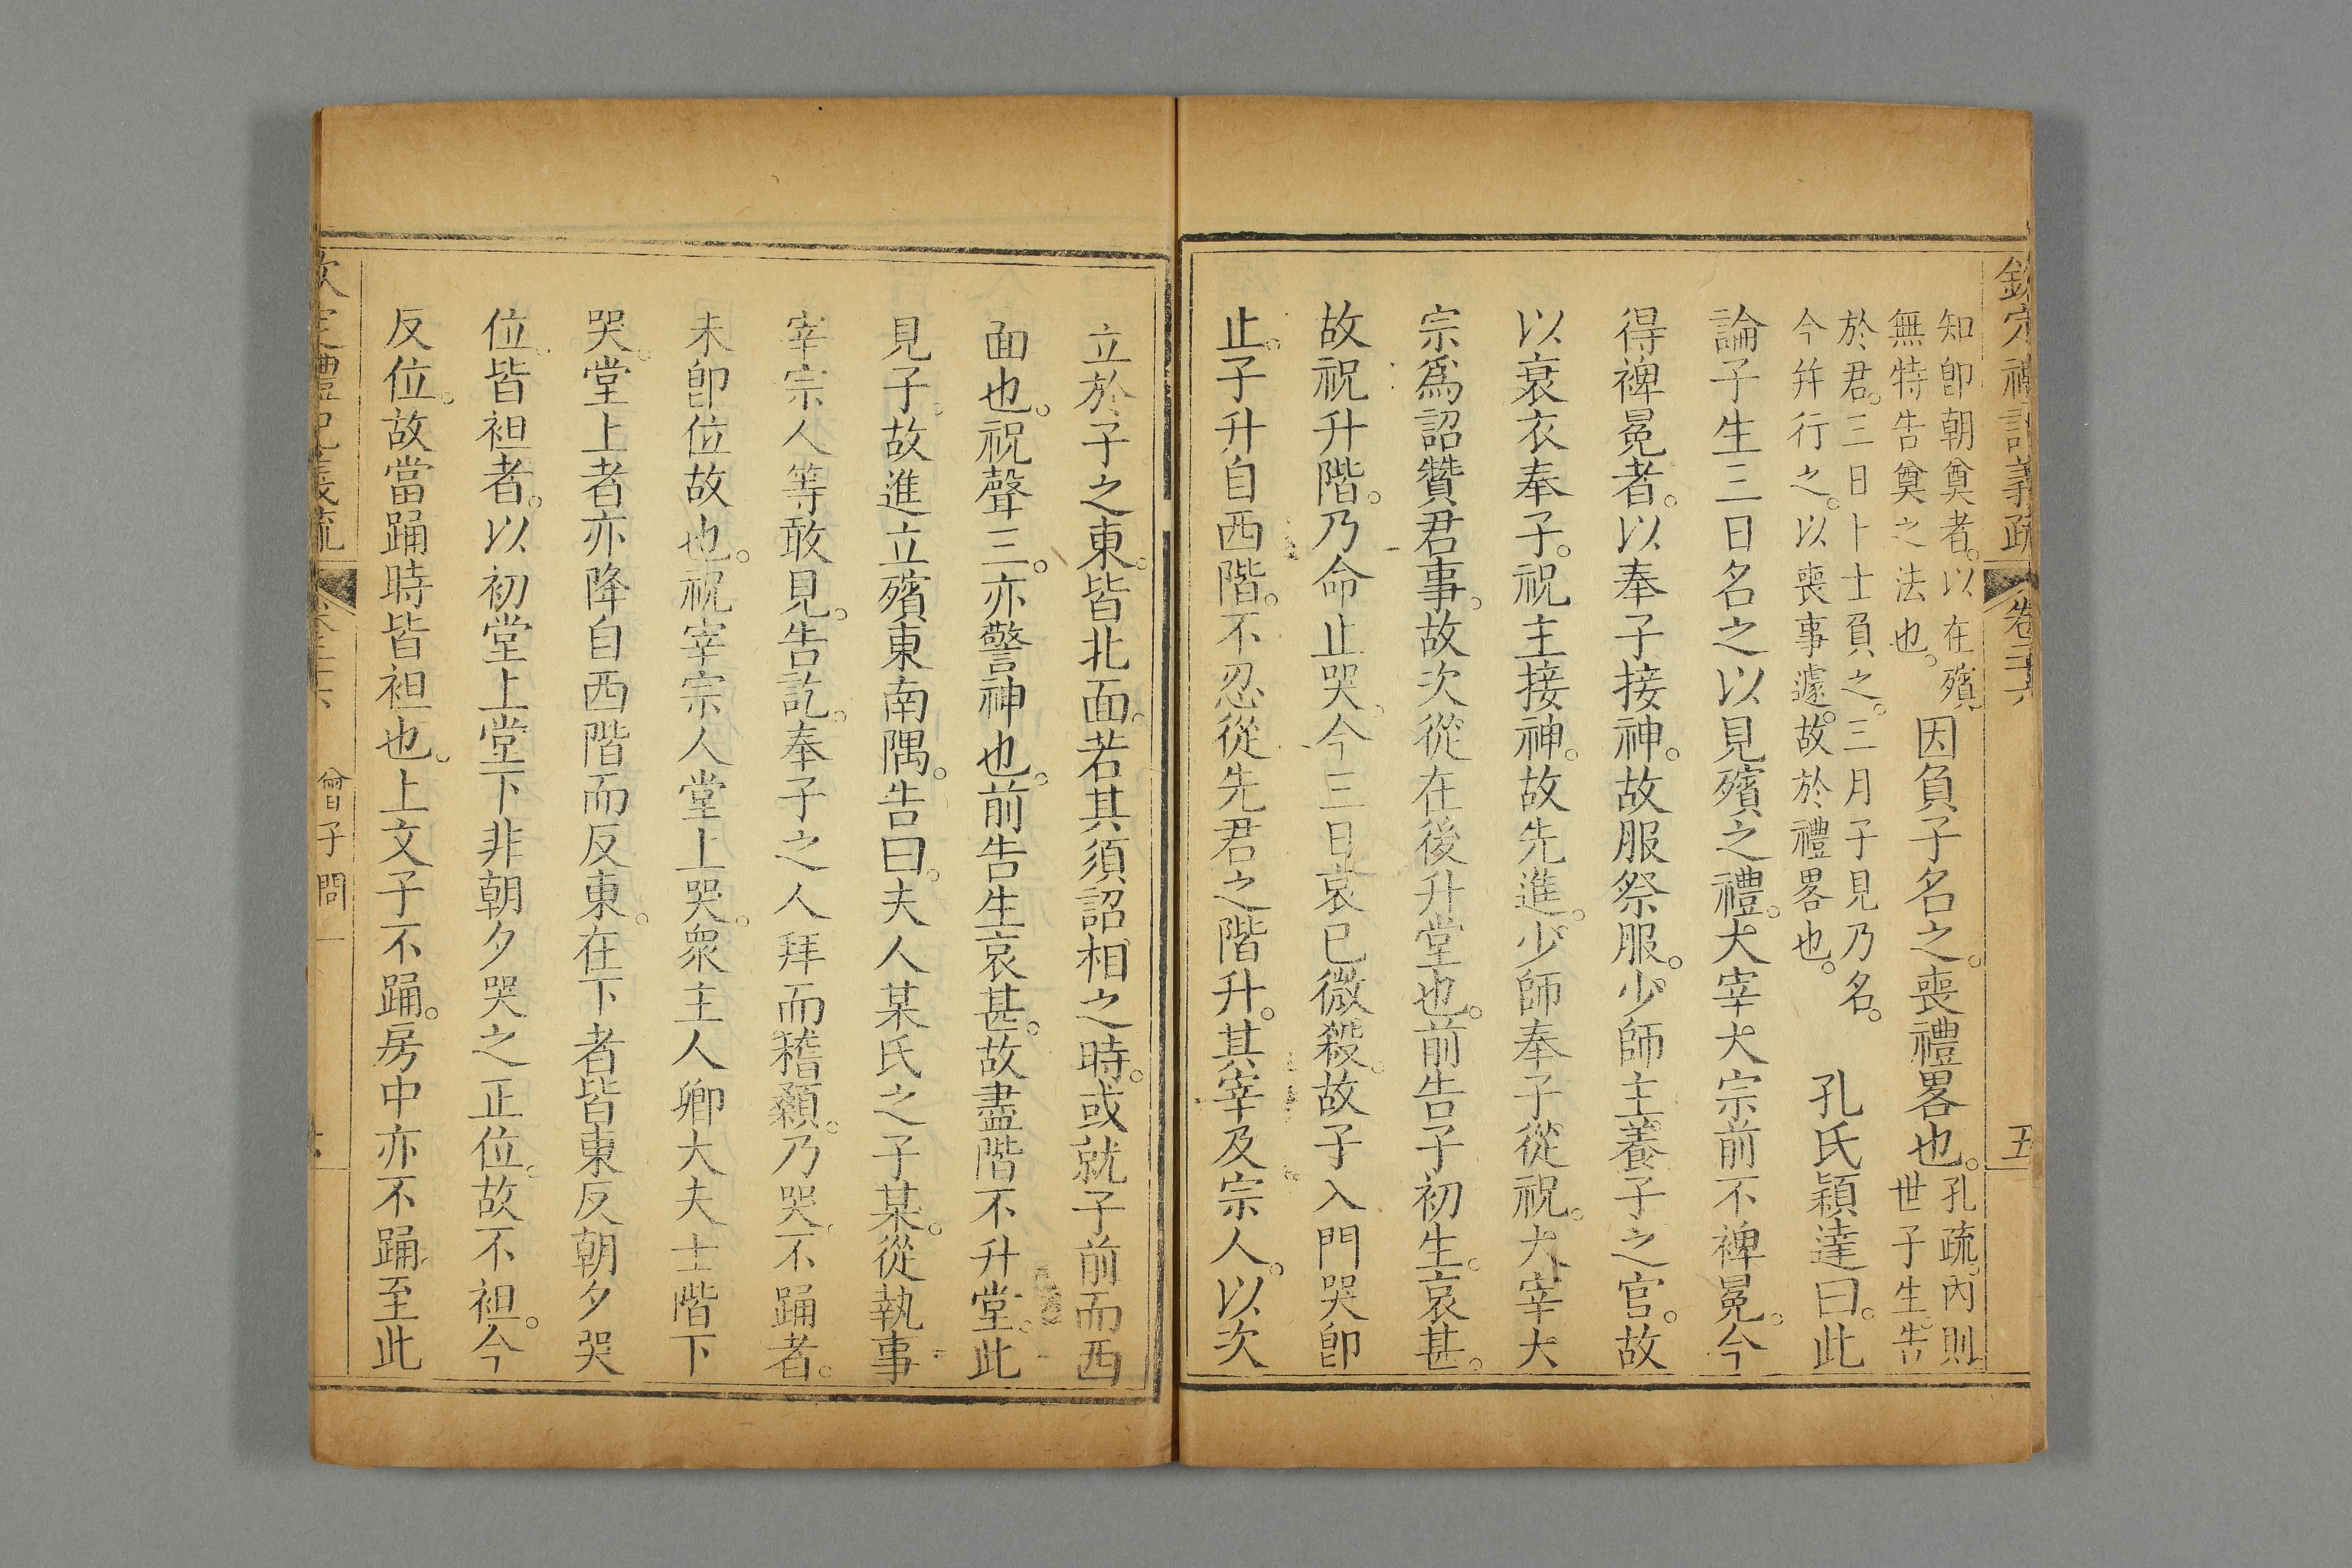 欽定禮記義疏 卷二十六 五
知卽朝奠者。以在殯
無特告奠之法也。
因負子名之。喪禮畧也。
孔疏。內則
世子生。告
於君。三日卜士負之。三月子見乃名。
今幷行之。以喪事遽。故於禮畧也。
孔氏穎達曰。此
論子生三日名之以見殯之禮。大宰大宗前不裨冕。今
得裨冕者。以奉子接神。故服祭服。少師主養子之官。故
以衰衣奉子。祝主接神。故先進。少師奉子從祝。大宰大
宗爲詔贊君事。故次從在後升堂也。前告子初生。哀甚。
故祝升階。乃命止哭。今三日哀已微殺。故子入門哭卽
止。子升自西階。不忍從先君之階升。其宰及宗人。以次
立於子之東。皆北面。若其須詔相之時。或就子前而西
面也。祝聲三。亦警神也。前告生哀甚。故盡階不升堂。此
見子。故進立殯東南隅。告曰。夫人某氏之子某。從執事
宰宗人等敢見。告訖。奉子之人拜而稽顙。乃哭不踊者。
未卽位故也。祝宰宗人堂上哭。衆主人卿大夫士階下
哭。堂上者亦降自西階而反東。在下者皆東反朝夕哭
位。皆袒者。以初堂上堂下非朝夕哭之正位。故不袒。今
反位。故當踊時皆袒也。上文子不踊。房中亦不踊。至此
欽定禮記義疏 卷二十六 曾子問